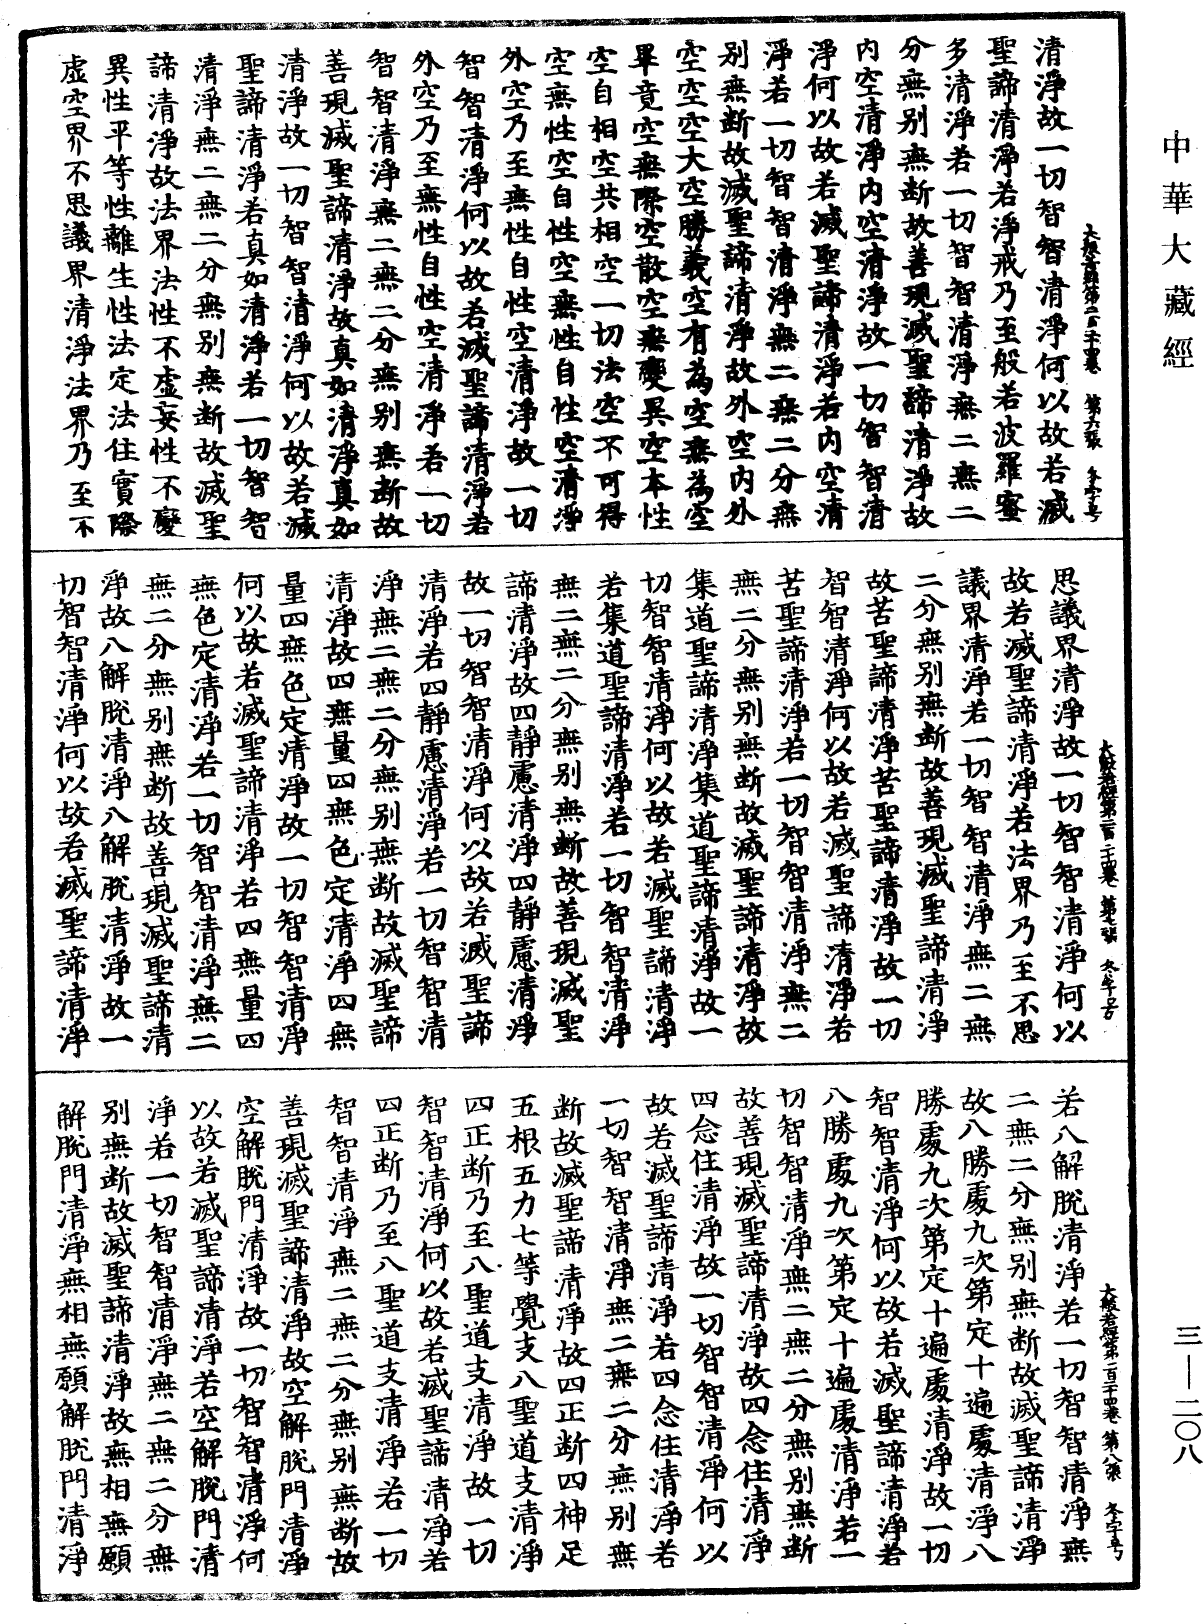 中華大藏經
大般若經第二百二十四卷　第六張　冬字号
清淨故一切智智清淨何以故若滅
聖諦清淨若淨戒乃至般若波羅蜜
多清淨若一切智智清淨無二無二
分無別無斷故善現滅聖諦清淨故
內空清淨內空清淨故一切智智清
淨何以故若滅聖諦清淨若內空清
淨若一切智智清淨無二無二分無
別無斷故滅聖諦清淨故外空內外
空空空大空勝義空有為空無為空
畢竟空無際空散空無變異空本性
空自相空共相空一切法空不可得
空無性空自性空無性自性空清淨
外空乃至無性自性空清淨故一切
智智清淨何以故若滅聖諦清淨若
外空乃至無性自性空清淨若一切
智智清淨無二無二分無別無斷故
善現滅聖諦清淨故真如清淨真如
清淨故一切智智清淨何以故若滅
聖諦清淨若真如清淨若一切智智
清淨無二無二分無別無斷故滅聖
諦清淨故法界法性不虛妄性不變
異性平等性離生性法定法住實際
虛空界不思議界清淨法界乃至不
大般若經第二百二十四卷　第七張　冬字号
思議界清淨故一切智智清淨何以
故若滅聖諦清淨若法界乃至不思
議界清淨若一切智智清淨無二無
二分無別無斷故善現滅聖諦清淨
故苦聖諦清淨苦聖諦清淨故一切
智智清淨何以故若滅聖諦清淨若
苦聖諦清淨若一切智智清淨無二
無二分無別無斷故滅聖諦清淨故
集道聖諦清淨集道聖諦清淨故一
切智智清淨何以故若滅聖諦清淨
若集道聖諦清淨若一切智智清淨
無二無二分無別無斷故善現滅聖
諦清淨故四靜慮清淨四靜慮清淨
故一切智智清淨何以故若滅聖諦
清淨若四靜慮清淨若一切智智清
淨無二無二分無別無斷故滅聖諦
清淨故四無量四無色定清淨四無
量四無色定清淨故一切智智清淨
何以故若滅聖諦清淨若四無量四
無色定清淨若一切智智清淨無二
無二分無別無斷故善現滅聖諦清
淨故八解脫清淨八解脫清淨故一
切智智清淨何以故若滅聖諦清淨
大般若經第二百二十四卷　第八張　冬字号
若八解脫清淨若一切智智清淨無
二無二分無別無斷故滅聖諦清淨
故八勝處九次第定十遍處清淨八
勝處九次第定十遍處清淨故一切
智智清淨何以故若滅聖諦清淨若
八勝處九次第定十遍處清淨若一
切智智清淨無二無二分無別無斷
故善現滅聖諦清淨故四念住清淨
四念住清淨故一切智智清淨何以
故若滅聖諦清淨若四念住清淨若
一切智智清淨無二無二分無別無
斷故滅聖諦清淨故四正斷四神足
五根五力七等覺支八聖道支清淨
四正斷乃至八聖道支清淨故一切
智智清淨何以故若滅聖諦清淨若
四正斷乃至八聖道支清淨若一切
智智清淨無二無二分無別無斷故
善現滅聖諦清淨故空解脫門清淨
空解脫門清淨故一切智智清淨何
以故若滅聖諦清淨若空解脫門清
淨若一切智智清淨無二無二分無
別無斷故滅聖諦清淨故無相無願
解脫門清淨無相無願解脫門清淨
三—二〇八